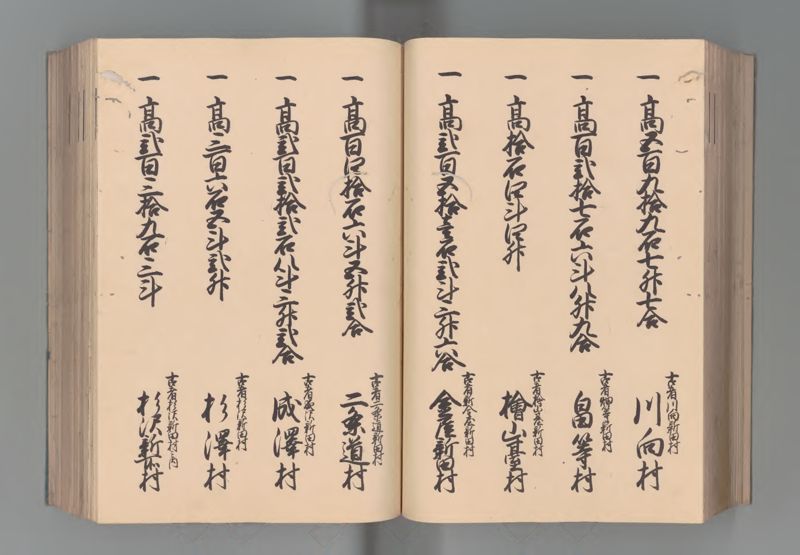 一 高五百九拾九石七升七合
古者川向新田村
川向村
一 高百弐拾七石六斗八升九合
古者畑等新田村
畠等村
一 高拾石四斗四升
古者檜山臺新田村
檜山臺村
一 高弐百五拾壱石弐斗三升六合
古者新金屋新田村
金屋新田村
一 高百四拾石六斗五升弐合
古者二条道新田村
二条道村
一 高弐百弐拾弐石八斗三升弐合
古者成沢新田村
成澤村
一 高三百六石五斗弐升
古者杉沢新田村
杉澤村
一 高弐百三拾九石三斗
古者杉沢新田村之内
杉沢新 村